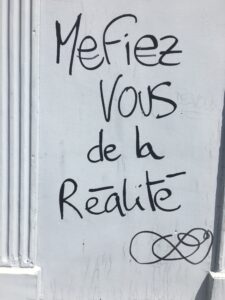 Mefiez
Vous
de la
Réalité